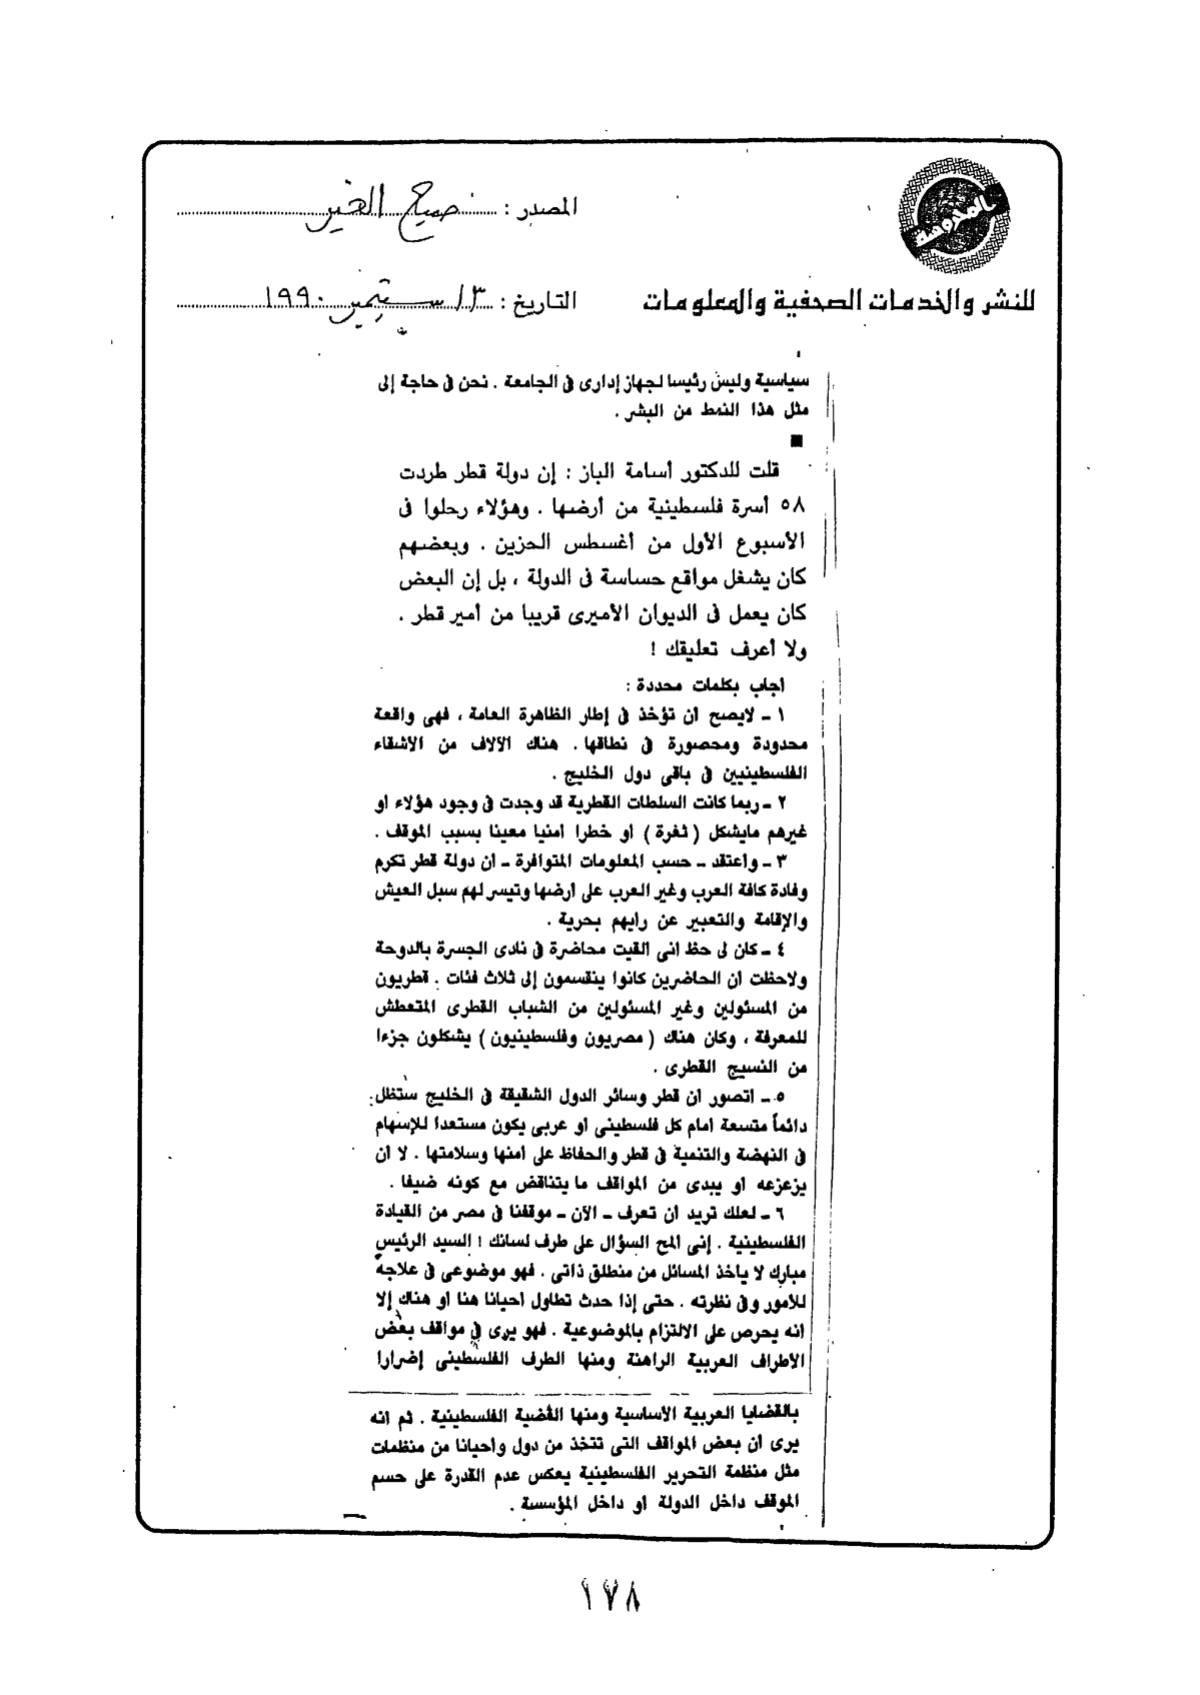 المصدر : صباح الخير
للنشر والخدمات الصحفية والمعلومات
التاريخ : ١٣ سبتمبر ١٩٩٠
سياسية وليس رئيسا لجهاز إدارى فى الجامعة . نحن فى حاجة إلى
مثل هذا النمط من البشر .
■
قلت للدكتور أسامة الباز : إن دولة قطر طردت
٥٨ أسرة فلسطينية من أرضها . وهؤلاء رحلوا فى
الأسبوع الأول من أغسطس الحزين . وبعضهم
كان يشغل مواقع حساسة فى الدولة ، بل إن البعض
كان يعمل فى الديوان الأميرى قريبا من أمير قطر .
ولا أعرف تعليقك !
أجاب بكلمات محددة :
١ ـ لايصح أن تؤخذ فى إطار الظاهرة العامة ، فهى واقعة
محدودة ومحصورة فى نطاقها . هناك الآلاف من الأشقاء
الفلسطينيين فى باقى دول الخليج .
٢ ـ ربما كانت السلطات القطرية قد وجدت فى وجود هؤلاء أو
غيرهم مايشكل ( ثغرة ) أو خطرا أمنيا معينا بسبب الموقف .
٣ ـ وأعتقد ـ حسب المعلومات المتوافرة ـ أن دولة قطر تكرم
وفادة كافة العرب وغير العرب على أرضها وتيسر لهم سبل العيش
والإقامة والتعبير عن رأيهم بحرية .
٤ ـ كان لى حظ أنى ألقيت محاضرة فى نادى الجسرة بالدوحة
ولاحظت أن الحاضرين كانوا ينقسمون إلى ثلاث فئات . قطريون
من المسئولين وغير المسئولين من الشباب القطرى المتعطش
للمعرفة ، وكان هناك ( مصريون وفلسطينيون ) يشكلون جزءا
من النسيج القطرى .
٥ ـ أتصور أن قطر وسائر الدول الشقيقة فى الخليج ستظل
دائماً متسعة أمام كل فلسطينى أو عربى يكون مستعدا للإسهام
فى النهضة والتنمية فى قطر والحفاظ على أمنها وسلامتها . لا أن
يزعزعه أو يبدى من المواقف ما يتناقض مع كونه ضيفا .
٦ ـ لعلك تريد أن تعرف ـ الآن ـ موقفنا فى مصر من القيادة
الفلسطينية . إنى ألمح السؤال على طرف لسانك ! السيد الرئيس
مبارك لا يأخذ المسائل من منطلق ذاتى . فهو موضوعى فى علاجه
للأمور وفى نظرته . حتى إذا حدث تطاول أحيانا هنا أو هناك إلا
أنه يحرص على الالتزام بالموضوعية . فهو يرى فى مواقف بعض
الأطراف العربية الراهنة ومنها الطرف الفلسطينى إضرارا
بالقضايا العربية الأساسية ومنها القضية الفلسطينية . ثم أنه
يرى أن بعض المواقف التى تتخذ من دول وأحيانا من منظمات
مثل منظمة التحرير الفلسطينية يعكس عدم القدرة على حسم
الموقف داخل الدولة أو داخل المؤسسة .
١٧٨